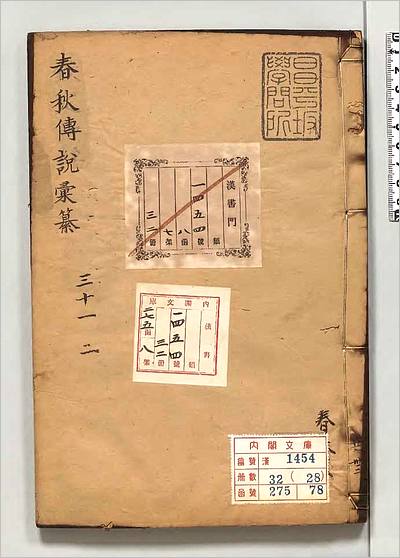 春秋傳說彙纂
三十一 二
昌平坂
學問所
漢書門
類
一四五四號
八函
七架
三二冊
內閣文庫
漢書
類
一四五四號
三二冊
二七五函
八架
春
內閣文庫
番號 漢 1454
冊數 32 (28)
函號 275 78